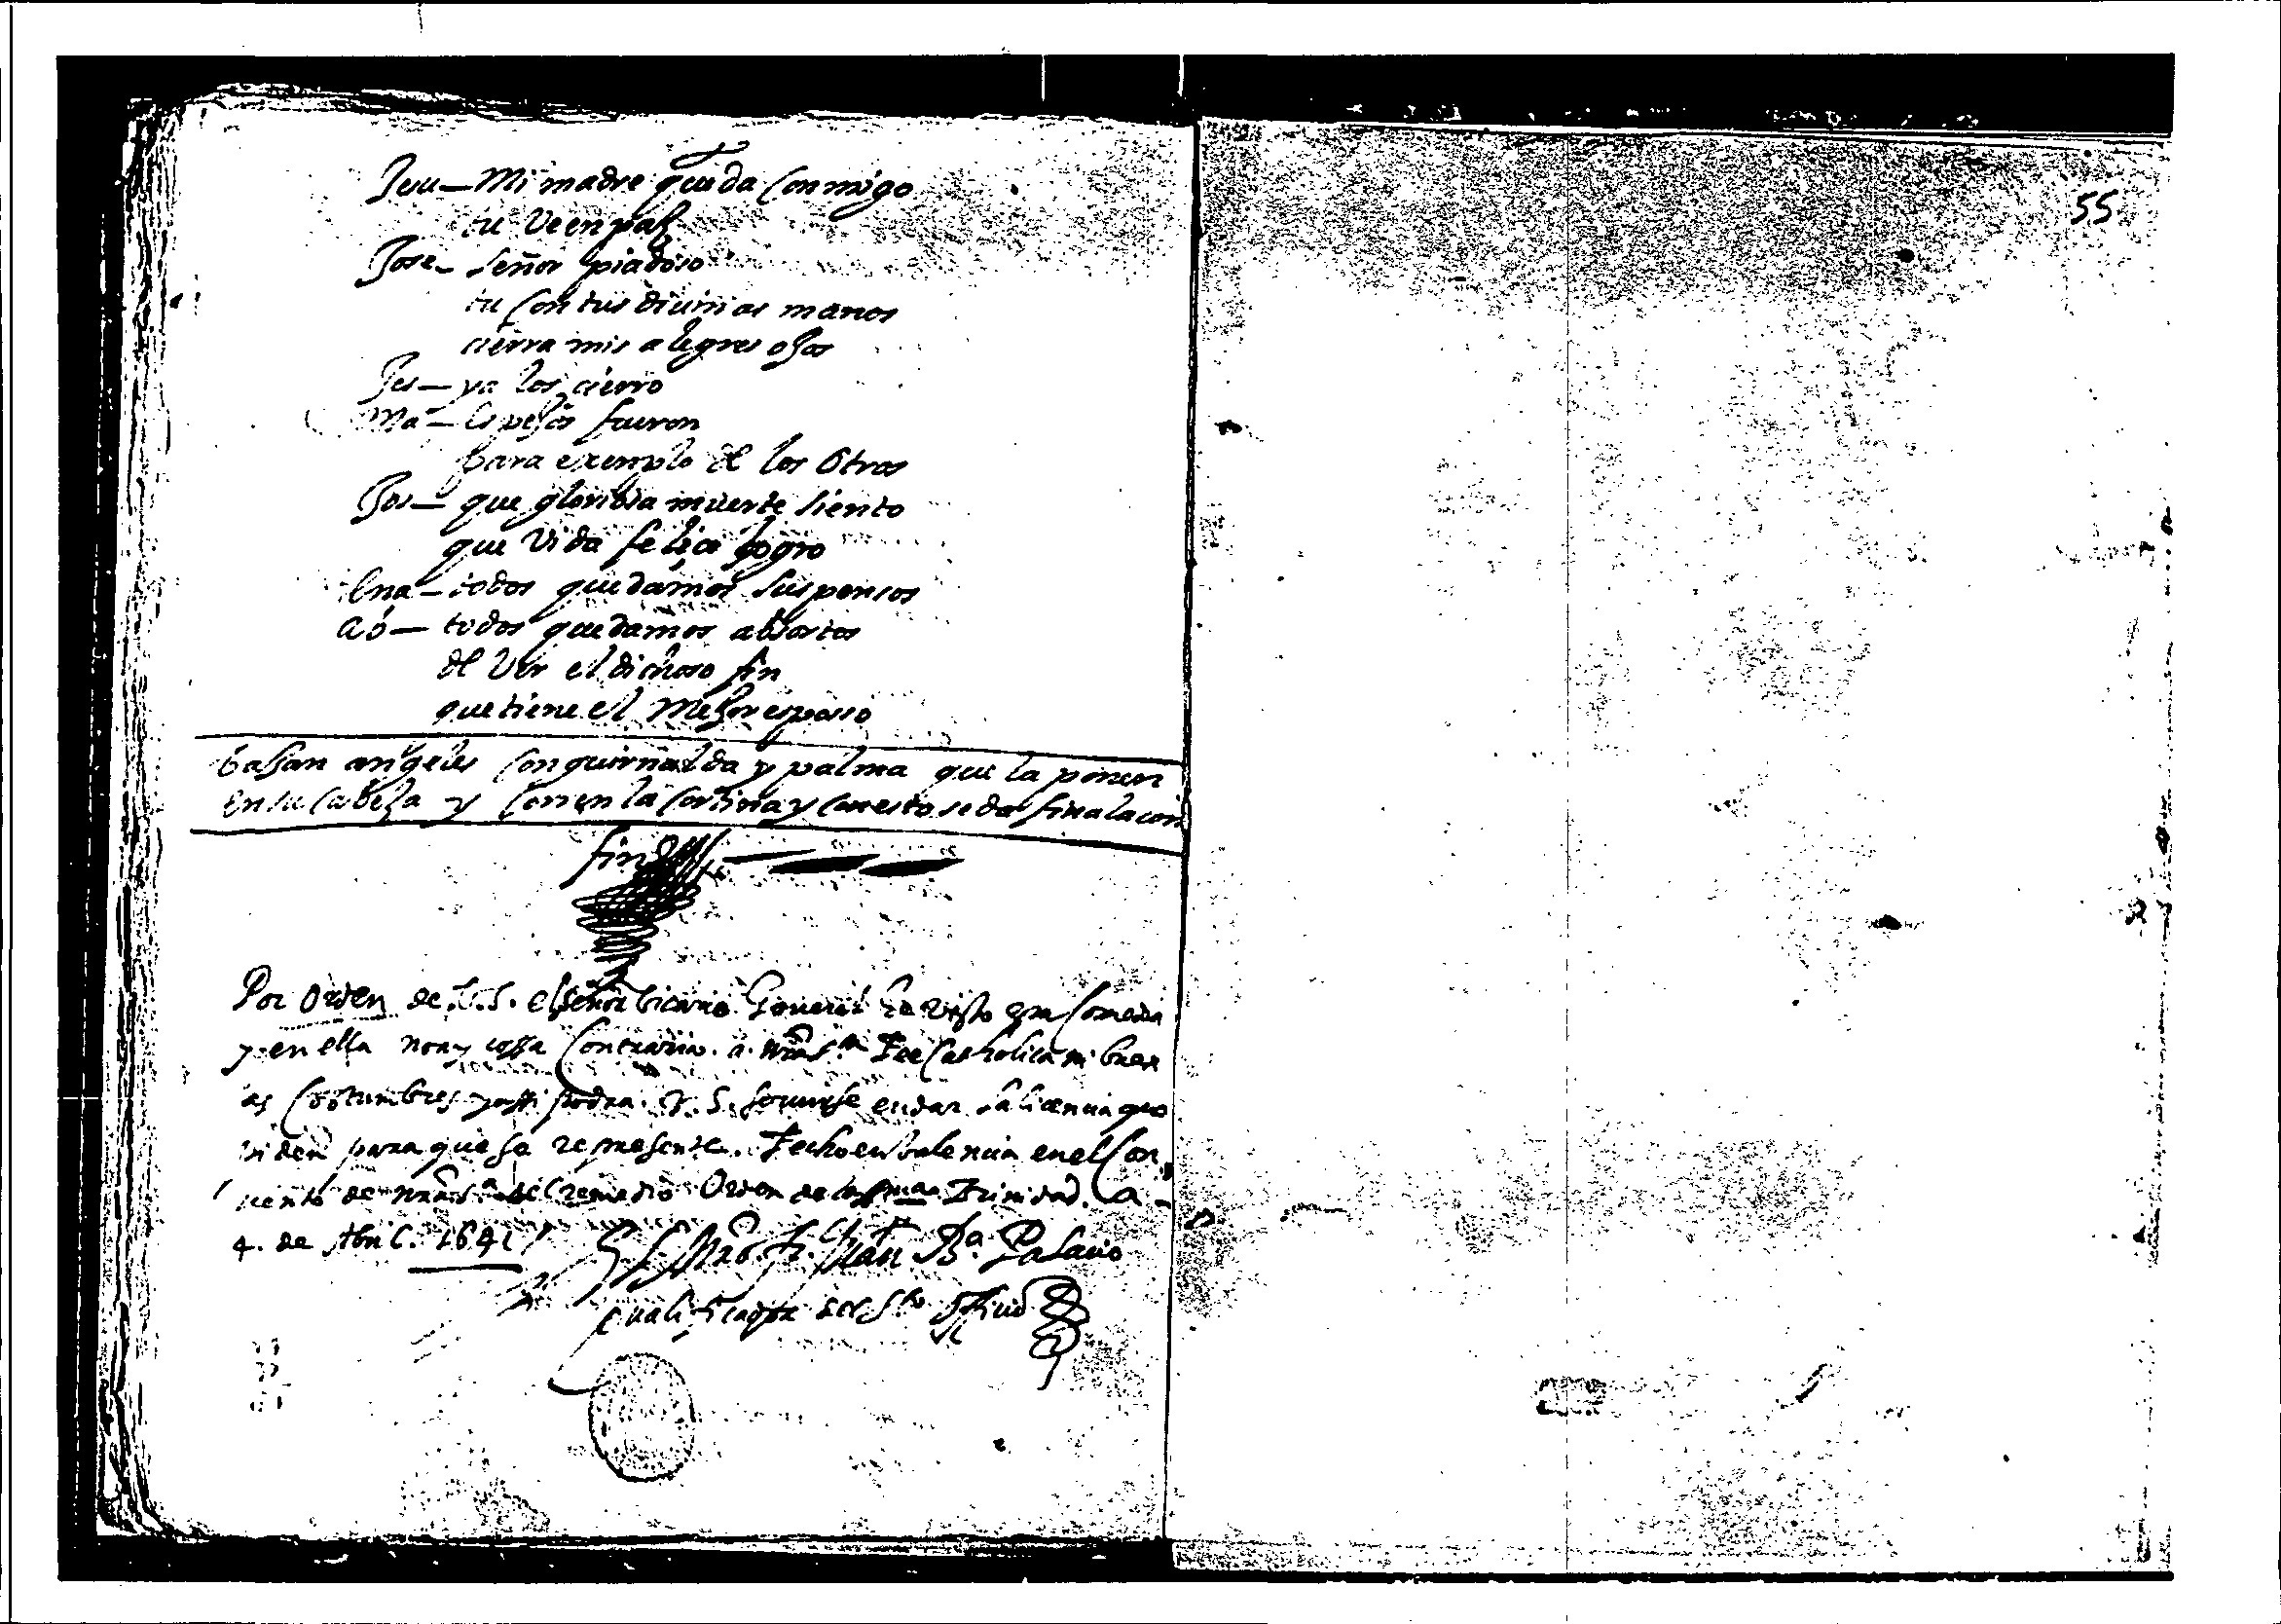 Jesu— Mi madre queda conmigo
tu Ve en paz
Jose— señor piadoso
tu con tus diuinas manos
cierra mis alegres ojos
Jes— ya los cierro
Ma— espejos fueron
para exemplo de los Otros
Jos— que gloriosa muerte siento
que Vida felice logro
Ena— todos quedamos suspensos
todos quedamos absortos
de Ver el dichoso fin
que tiene el Mejor esposo
baJan angeles con guirnalda y palma que la ponen
en su cabeza y corren la cortina y con esto se da fin a la com
fin
Por Orden de V.S. el señor bicario General he visto esta Comedia
y en ella no ay cossa Contraria a nrã Sta Fee Catholica ni buen
as Costumbres y assi podra V.S. seruirse en dar la licencia que
piden para que se represente. Fecho en balencia en el Con
uento de nrã Sa del remedio Orden de la SSma Trinidad a
4. de Abril. 1641
El Mro. Fr. Juan Bta. Palacio
qualificador del Sto Officio
55